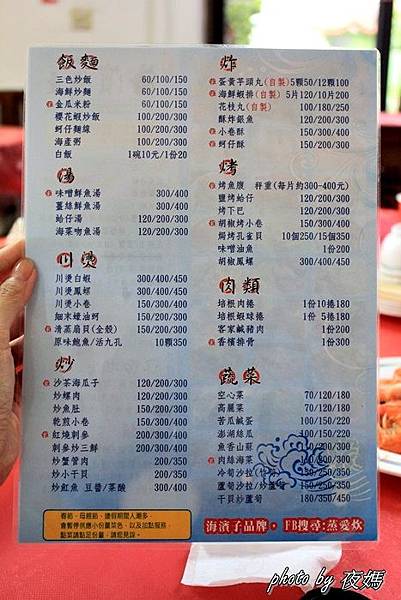 飯麵
三色炒飯 60/100/150
海鮮炒麵 60/100/150
金瓜米粉 100/200/300
櫻花蝦炒飯 100/200/300
蚵仔麵線 100/200/300
海產粥 100/200/300
白飯 1碗10元/1份20
湯
味噌鮮魚湯 300/400
薑絲鮮魚湯 300/400
蛤仔湯 120/200/300
海菜吻魚湯 120/200/300
川燙
川燙白蝦 300/400/450
川燙鳳螺 300/400/450
川燙小卷 150/300/400
細末蠔油蚵 150/200/300
清蒸扇貝(全殼) 150/200/300
原味鮑魚/活九孔 10顆350
炒
沙茶海瓜子 120/200/300
炒螺肉 120/200/300
炒魚肚 150/200/300
乾煎小卷 150/300/400
紅燒刺參 200/300/400
刺參炒三鮮 200/300/400
炒蟹管肉 200/350
炒小干貝 200/350
炒魟魚 豆醬/菜酸 300/400
春節、母親節、連假期間人潮多，
會暫停供應小份量菜色，以及加點服務，
點菜請點足份量，請您見諒。
炸
蛋黃芋頭丸(自製)5顆50/12顆100
海鮮蝦排(自製) 5片120/10片200
花枝丸(自製) 100/180/250
酥炸銀魚 100/200/300
小卷酥 150/200/300
蚵仔酥 150/200/300
烤
烤魚腹 秤重(每片約300-400元)
鹽烤蛤仔 120/200/300
烤下巴 120/200/300
胡椒烤小卷 150/300/400
焗烤孔雀貝 10個250/15個350
味噌油魚 1份200
胡椒鳳螺 300/400/450
肉類
培根肉捲 1份10捲180
培根蝦球捲 1份 5捲180
客家鹹豬肉 1份200
香檳排骨 1份300
蔬菜
空心菜 70/120/180
高麗菜 70/120/180
苦瓜鹹蛋 100/150/200
澎湖絲瓜 100/150/200
魚香山蘇 100/150/200
肉絲海茸 100/200/300
沙筍炒肉絲
蘆筍沙拉/炒蘆筍 150/250/350
干貝炒蘆筍 180/350/450
海濱子品牌 FB搜尋:蒸愛炊
photo by 夜媽